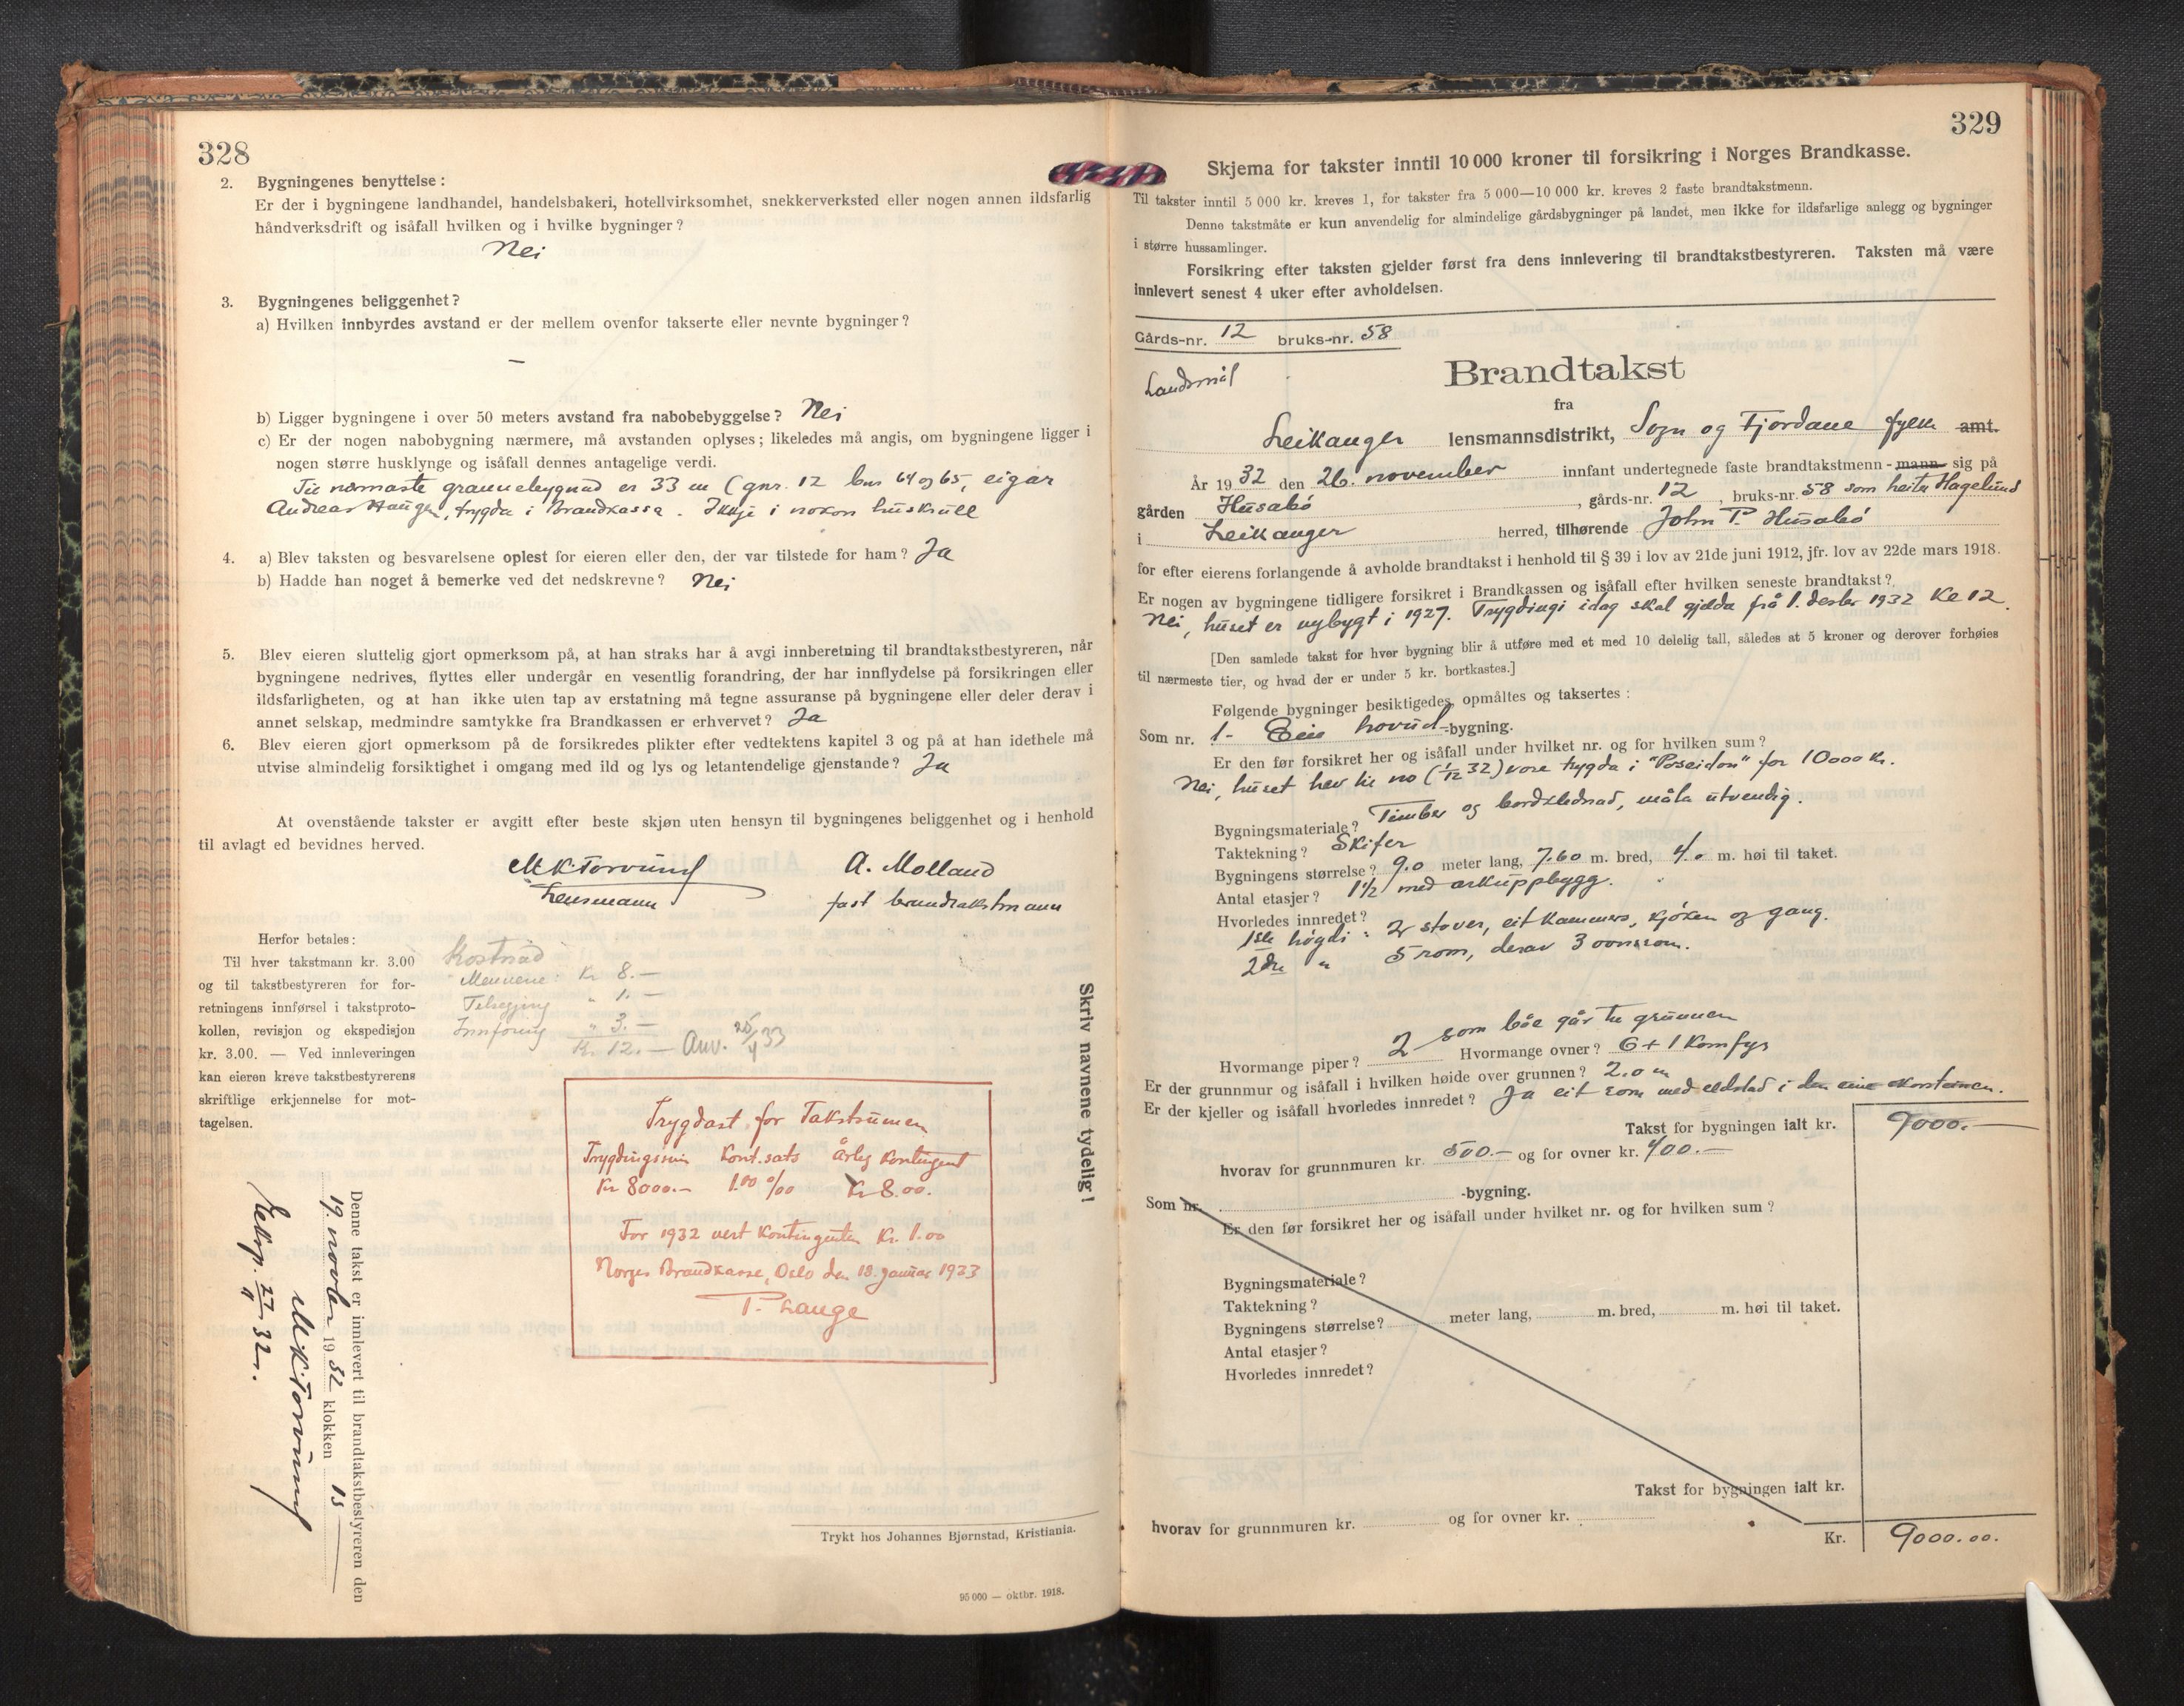 328
2. Bygningenes benyttelse:
Er der i bygningene landhandel, handelsbakeri, hotellvirksomhet, snekkerverksted eller nogen annen ildsfarlig
håndverksdrift og isåfall hvilken og i hvilke bygninger?
Nei
3. Bygningenes beliggenhet?
a) Hvilken innbyrdes avstand er der mellem ovenfor takserte eller nevnte bygninger?
—
b) Ligger bygningene i over 50 meters avstand fra nabobebyggelse? Nei
c) Er der nogen nabobygning nærmere, må avstanden oplyses; likeledes må angis, om bygningene ligger i
nogen større husklynge og isåfall dennes antagelige verdi.
Til næmaste grannebygnad er 33 m (gnr. 12 bnr 64 og 65, eigar
Andreas Haugen, trygda i Brandkassa. Ikkje i nokon huskrull
4. a) Blev taksten og besvarelsene oplest for eieren eller den, der var tilstede for ham? Ja
b) Hadde han noget å bemerke ved det nedskrevne? Nei
5. Blev eieren sluttelig gjort opmerksom på, at han straks har å avgi innberetning til brandtakstbestyreren, når
bygningene nedrives, flyttes eller undergår en vesentlig forandring, der har innflydelse på forsikringen eller
ildsfarligheten, og at han ikke uten tap av erstatning må tegne assuranse på bygningene eller deler derav i
annet selskap, medmindre samtykke fra Brandkassen er erhvervet? Ja
6. Blev eieren gjort opmerksom på de forsikredes plikter efter vedtektens kapitel 3 og på at han idethele må
utvise almindelig forsiktighet i omgang med ild og lys og letantendelige gjenstande? Ja
At ovenstående takster er avgitt efter beste skjøn uten hensyn til bygningenes beliggenhet og i henhold
til avlagt ed bevidnes herved.
M K Torvund A. Molland
Lensmann fast brandtakstmann
Herfor betales:
Til hver takstmann kr. 3.00
og til takstbestyreren for for-
retningens innførsel i takstproto-
kollen, revisjon og ekspedisjon
kr. 3.00. — Ved innleveringen
kan eieren kreve takstbestyrerens
skriftlige erkjennelse for mot-
tagelsen.
Kostnad
Mennene: Kr 8.—
Tilsegjing " 1.—
Innføring " 3.—
Kr. 12.— Anv. 25/4 33
Skriv navnene tydelig!
Trygdast for Takstsumen
Trygdingssum Kont.sats Årleg Kontingent
Kr 8000.— 1.00 ‰ Kr 8.00.
For 1932 vert Kontingenten Kr. 1.00
Norges Brandkasse, Oslo den 18. januar 1933
P. Lange
Denne takst er innlevert til brandtakstbestyreren den
19. novbr 1932 klokken 15
M K Torvund
Eksp. 27/11 32.
Trykt hos Johannes Bjørnstad, Kristiania.
95 000 — oktbr. 1918.
329
Skjema for takster inntil 10 000 kroner til forsikring i Norges Brandkasse.
Til takster inntil 5 000 kr. kreves 1, for takster fra 5 000—10 000 kr. kreves 2 faste brandtakstmenn.
Denne takstmåte er kun anvendelig for almindelige gårdsbygninger på landet, men ikke for ildsfarlige anlegg og bygninger
i større hussamlinger.
Forsikring efter taksten gjelder først fra dens innlevering til brandtakstbestyreren. Taksten må være
innlevert senest 4 uker efter avholdelsen.
Gårds-nr. 12 bruks-nr. 58
Landsmål
Brandtakst
fra
Leikanger lensmannsdistrikt, Sogn og Fjordane fylke amt.
År 1932 den 26. november innfant undertegnede faste brandtakstmenn - mann sig på
gården Husabø, gårds-nr. 12, bruks-nr. 58 som heiter Hagelund
i Leikanger herred, tilhørende John P. Husabø
for efter eierens forlangende å avholde brandtakst i henhold til § 39 i lov av 21de juni 1912, jfr. lov av 22de mars 1918.
Er nogen av bygningene tidligere forsikret i Brandkassen og isåfall efter hvilken seneste brandtakst?
Nei, huset er nybygt i 1927. Trygdingi idag skal gjelda frå 1. desbr 1932 Kl 12.
[Den samlede takst for hver bygning blir å utføre med et med 10 delelig tall, således at 5 kroner og derover forhøies
til nærmeste tier, og hvad der er under 5 kr. bortkastes.]
Følgende bygninger besiktigedes, opmåltes og taksertes:
Som nr. 1 - Ein hovud-bygning.
Er den før forsikret her og isåfall under hvilket nr. og for hvilken sum?
Nei, huset hev til no (1/12 32) vore trygda i "Poseidon" for 10000 Kr.
Bygningsmateriale? Timber og bordklednad, måla utvendig.
Taktekning? Skifer
Bygningens størrelse? 9.0 meter lang, 7.60 m. bred, 4.0 m. høi til taket.
Antal etasjer? 1 1/2 med arkuppbygg.
Hvorledes innredet?
1ste høgdi: 2 stover, eit kammers, kjøken og gang.
2dre " 5 rom, derav 3 ovnsrom.
Hvormange piper? 2 som båe går til grunnen Hvormange ovner? 6 + 1 komfyr
Er der grunnmur og isåfall i hvilken høide over grunnen? 2.0 m
Er der kjeller og isåfall hvorledes innredet? Ja eit rom med eldstad i den eine skorsteinen.
Takst for bygningen ialt kr. 9000.—
hvorav for grunnmuren kr. 500.— og for ovner kr. 400.—
Som nr. -bygning.
Er den før forsikret her og isåfall under hvilket nr. og for hvilken sum?
Bygningsmateriale?
Taktekning?
Bygningens størrelse? meter lang, m. bred, m. høi til taket.
Antal etasjer?
Hvorledes innredet?
Takst for bygningen ialt kr.
hvorav for grunnmuren kr. og for ovner kr.
Kr. 9000.00.